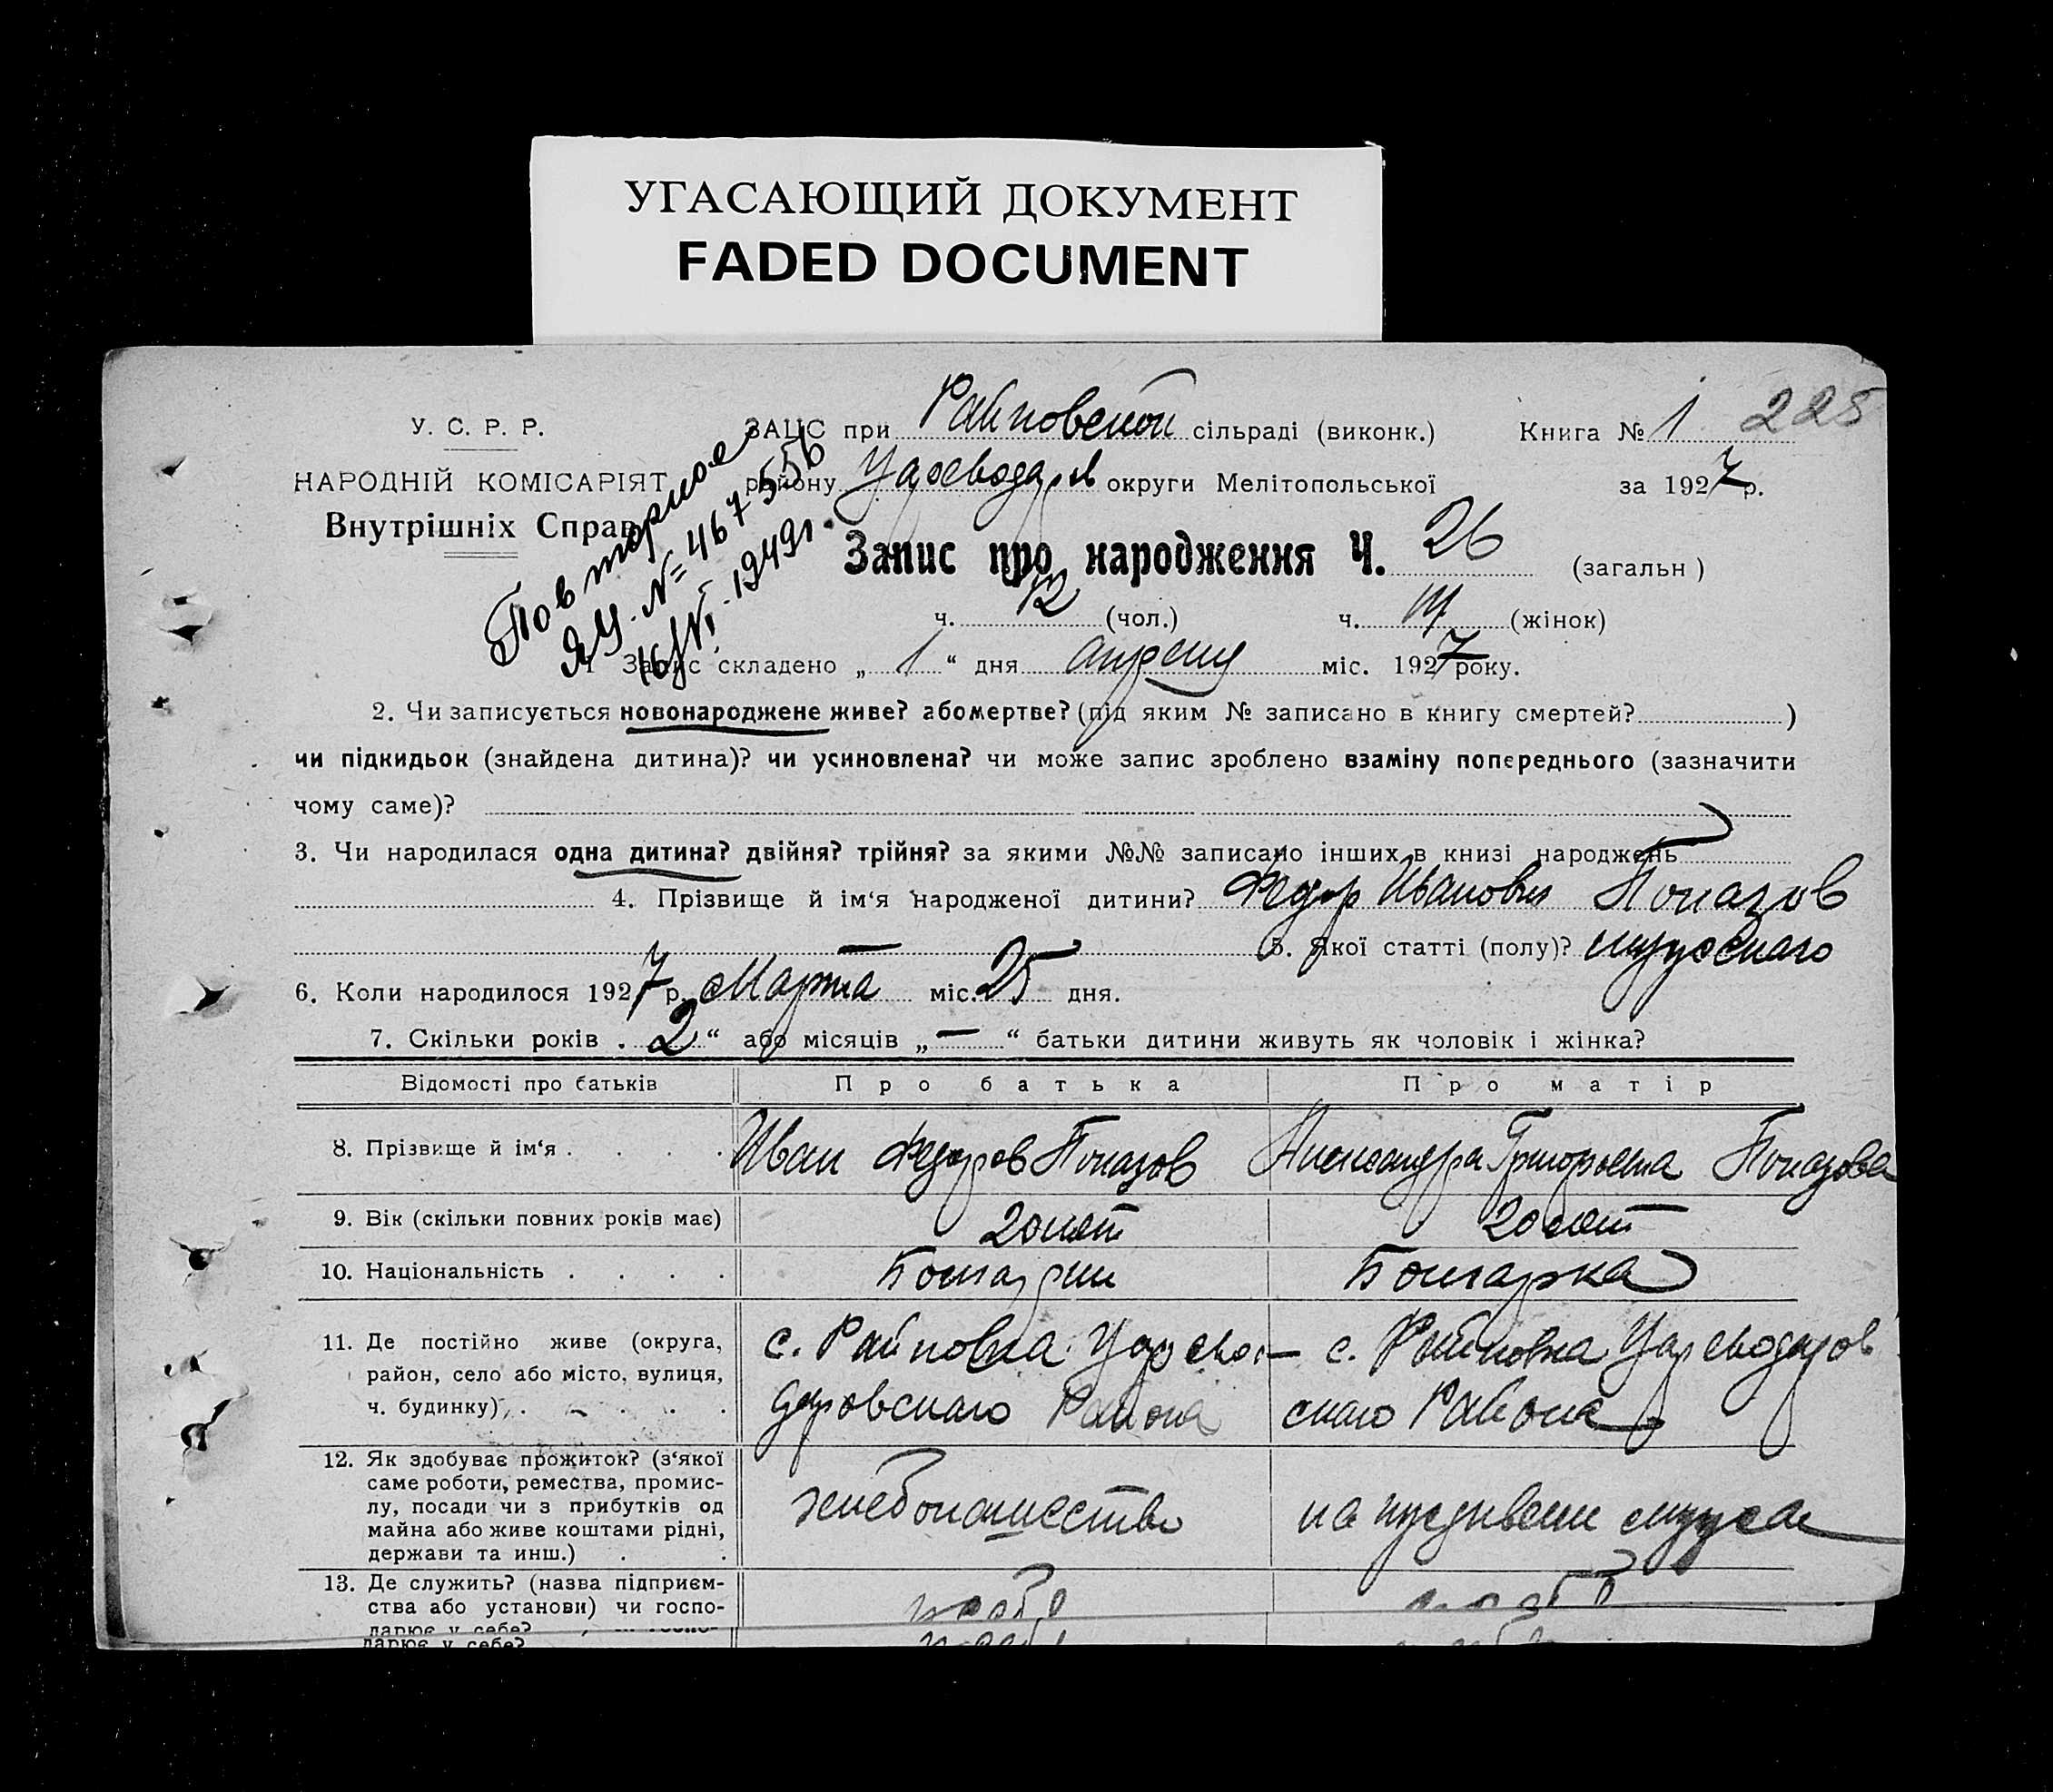 УГАСАЮЩИЙ ДОКУМЕНТ
FADED DOCUMENT
У. С. Р. Р.
НАРОДНІЙ КОМІСАРІЯТ
Внутрішніх Справ
Повторное
ЯЦ. № 467556
16/VI. 1949г.
ЗАЦС при Райновской сільраді (виконк.)
району Царевода ров округи Мелітопольської
Книга № 1 225
за 1927 р.
Запис про народження Ч. 26 (загальн )
ч. 12 (чол.) ч. (жінок)
1 Запис складено „ 1 “ дня апрель міс. 1927 року.
2. Чи записується новонароджене живе? або мертве? (під яким № записано в книгу смертей? )
чи підкидьок (знайдена дитина)? чи усиновлена? чи може запис зроблено взаміну попереднього (зазначити
чому саме)?
3. Чи народилася одна дитина? двійня? трійня? за якими №№ записано інших в книзі народжень
4. Прізвище й ім‘я народженої дитини? Федор Иванович Попазов
5. Якої статті (полу)? мужскаго
6. Коли народилося 1927 р. Марта міс. 25 дня.
7. Скільки років . 2 “ або місяців „ — “ батьки дитини живуть як чоловік і жінка?
Відомості про батьків Про батька Про матір
8. Прізвище й ім‘я . . . . Иван Федоров Попазов Александра Григорьевна Попазова
9. Вік (скільки повних років має) 20 лет 20 лет
10. Національність . . . . Болгарин Болгарка
11. Де постійно живе (округа,
район, село або місто, вулиця,
ч. будинку) . . . . .
с. Райновка Царево-
даровскаго Района
с. Райновка Цареводаров
скаго Района
12. Як здобуває прожиток? (з‘якої
саме роботи, ремества, промис-
лу, посади чи з прибутків од
майна або живе коштами рідні,
держави та инш.) . .
хлебопашество
на иждивени мужа
13. Де служить? (назва підприєм-
ства або установи) чи госпо-
дарює у себе?
дарює у себе?